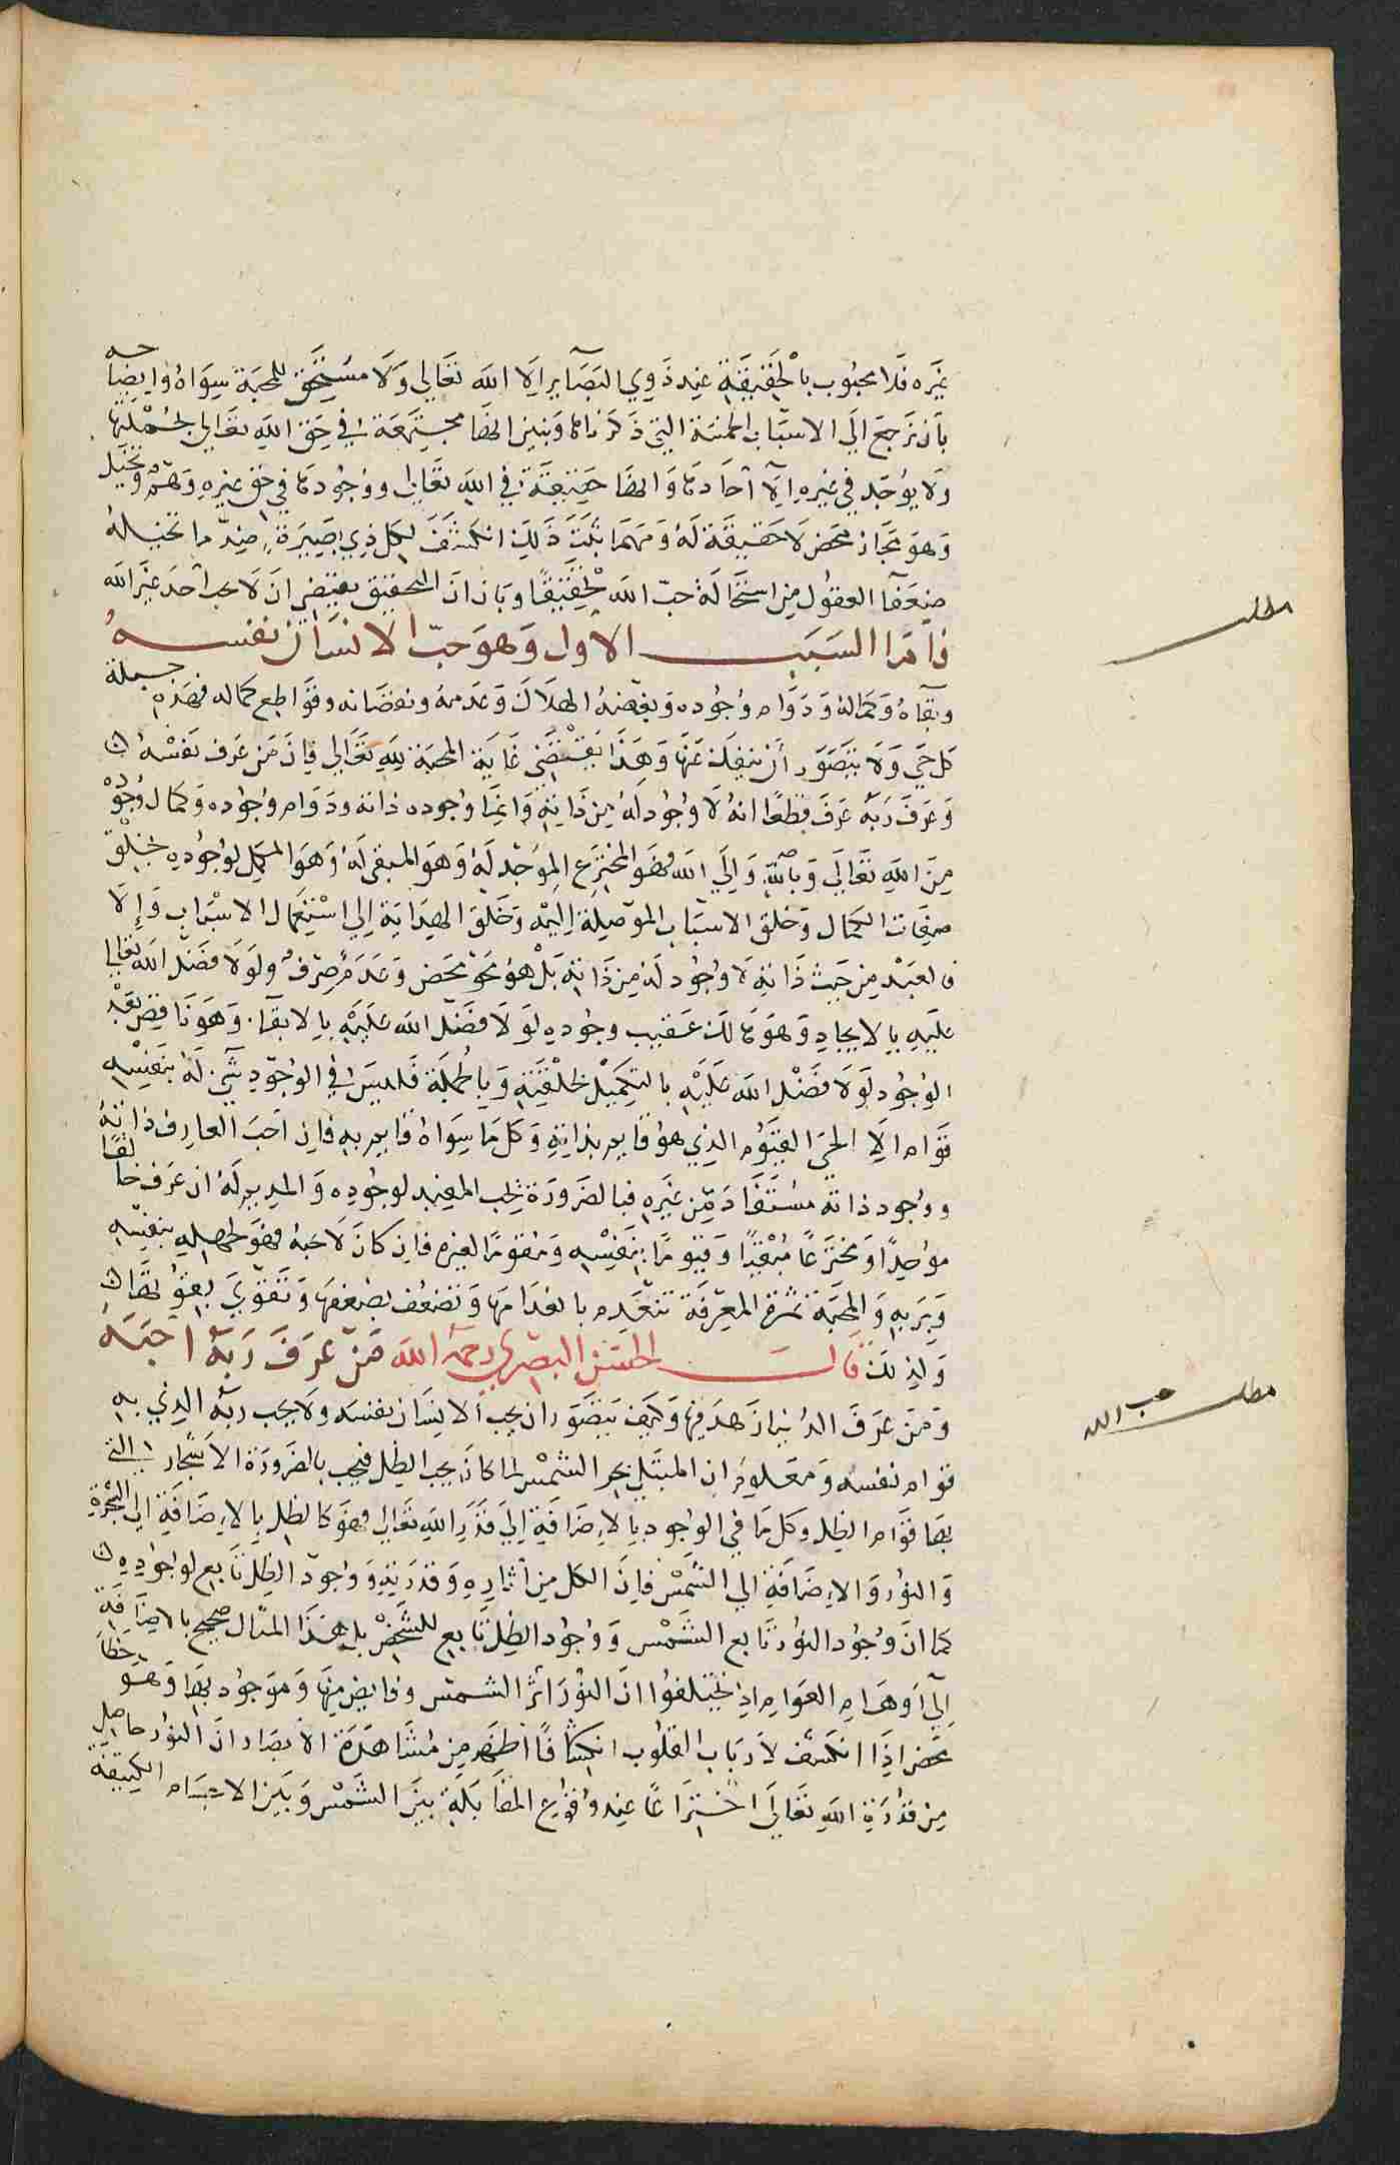 غيره فلا محبوب بالحقيقة عند ذوي البصآير الا الله تعالى ولا مستحق للمحبة سواه وايضاحه
بان نرجع الى الاسباب الخمسة التي ذكرناها ونبين انها مجتمعة في حق الله تعالى بجملتها
ولا يوجد في غيره الا آحادها وانها حقيقة في الله تعالى ووجودها في حق غيره وهم وتخيل
وهو مجاز محض لا حقيقة له ومهما ثبت ذلك انكشف لكل ذي بصيرة ضد ما تخيله
ضعفآ العقول من استحالة حب الله تحقيقا وبان ان التحقيق يقتضي ان لا يحب احد غير الله
فاما السبب الاول وهو حب الانسان نفسه
وبقآه وكماله ودوام وجوده وبغضه لهلاكه وعدمه ونقصانه وقواطع كماله فهذه جبلة
كل حي ولا يتصور أن ينفك عنها وهذا يقتضي غاية المحبة لله تعالى فإن من عرف نفسه
وعرف ربه عرف قطعا انه لا وجود له من ذاته وانما وجوده ذاته ودوام وجوده وكمال وجوده
من الله تعالى وبالله وإلى الله فهو المخترع الموجد له وهو المبقي له وهو المكمل لوجوده بخلق
صفات الكمال وخلق الاسباب الموصلة اليه وخلق الهداية إلى استعمال الاسباب وإلا
فالعبد من حيث ذاته لا وجود له من ذاته بل هو محو محض وعدم صرف ولولا فضل الله تعالى
عليه بالايجاد وهو هالك عقيب وجوده لولا فضل الله عليه بالابقآء وهو ناقص بعد
الوجود لولا فضل الله عليه بالتكميل لخلقته وبالجملة فليس في الوجود شيء له بنفسه
قوام الا الحي القيوم الذي هو قايم بذاته وكل ما سواه قايم به فإن احب العارف ذاته
ووجود ذاته مستفاد من غيره فبالضرورة يحب المفيد لوجوده والمديم له ان عرف خالقا
موجدًا ومخترعًا مبقيًا وقيومًا بنفسه ومقومًا لغيره فإن كان لا يحبه فهو لجهله بنفسه
وبربه والمحبة ثمرة المعرفة تنعدم بانعدامها وتضعف بضعفها وتقوى بقوتها
ولذلك قال الحسن البصري رحمه الله من عرف ربه احبه
ومن عرف الدنيا زهد فيها وكيف يتصور ان يحب الانسان نفسه ولا يحب ربه الذي به
قوام نفسه ومعلوم ان المبتلى بحر الشمس لما كان يحب الظل فيحب بالضرورة الاشجار التي
بها قوام الظل وكل ما في الوجود بالاضافة إلى قدرة الله تعالى فهو كالظل بالاضافة إلى الشجرة
والنور والاضافة إلى الشمس فإن الكل من آثاره وقدرته ووجود الظل تابع لوجوده
كما ان وجود النور تابع الشمس ووجود الظل تابع للشخص بل هذا المثال صحيح بالاضافة
إلى اوهام العوام اذ تخيلوا ان النور اثر الشمس وفايض منها وموجود بها وهو خطأ
محض اذا انكشف لارباب القلوب انكشافًا أظهر من مشاهدة الابصار ان النور حاصل
من قدرة الله تعالى اختراعًا عند وقوع المقابلة بين الشمس وبين الاجسام الكثيفة
مطلب
مطلب حب الله